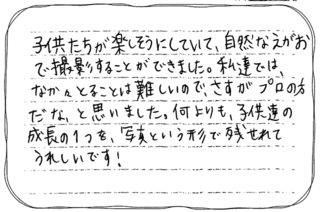 子供たちが楽しそうにしていて、自然なえがお
で撮影することができました。私達では、
なか々とることは難しいので、さすがプロの方
だな、と思いました。何よりも、子供達の
成長の1つを、写真という形で残せれて
うれしいです!